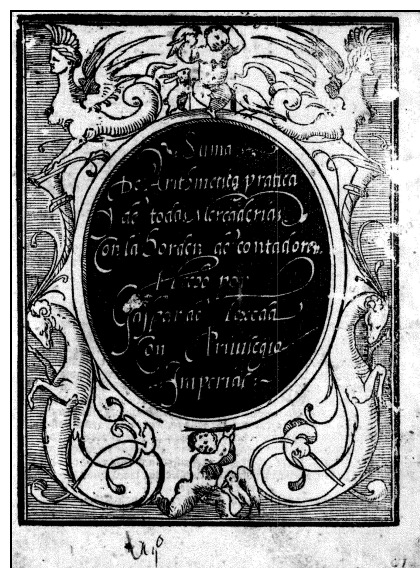 Suma
De Arithmetica pratica
y de todas Mercaderias
Con la horden de contadores
Hecho por
Gaspar de Texeda
Con Priuilegio
Imperial